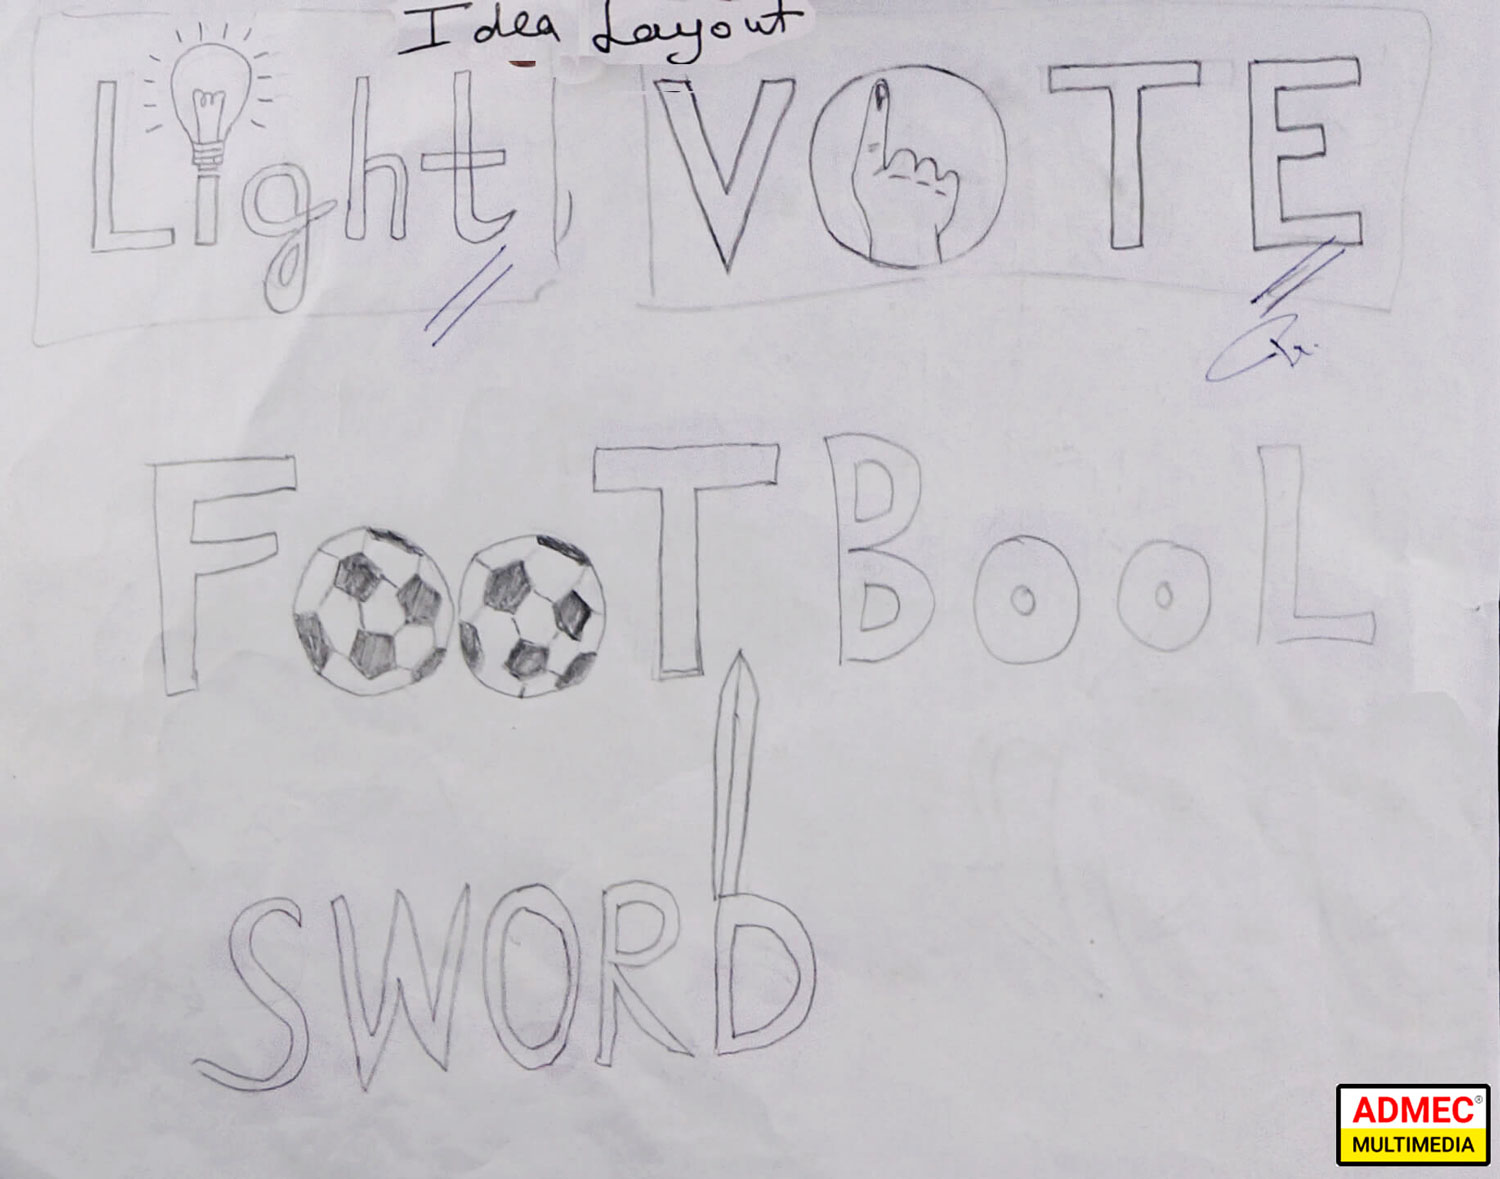 Idea Layout
Light
VOTE
FooT BooL
SWORD
ADMEC®
MULTIMEDIA